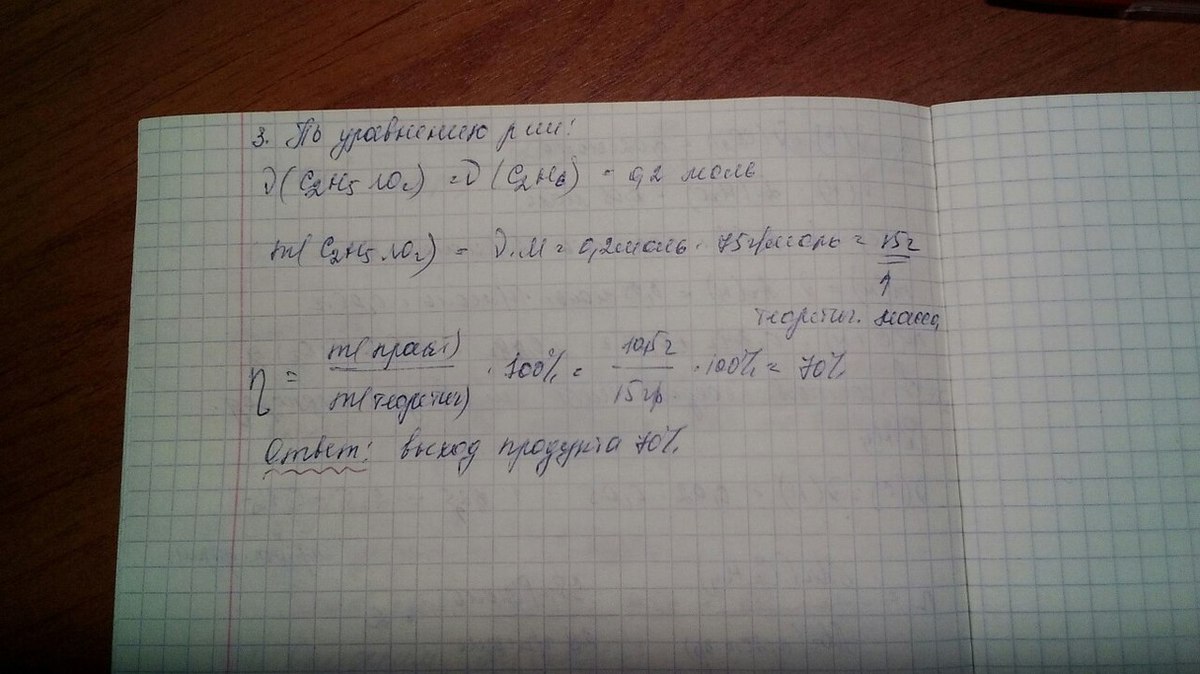 3. По уравнению р-ии:
ν(C₂H₅NO₂) = ν(C₂H₆) = 0,2 моль
m(C₂H₅NO₂) = ν·M = 0,2моль · 75г/моль = 15г
теоретич. масса
η = m(практ) / m(теоретич) · 100% = 10,5г / 15гр · 100% = 70%
Ответ: выход продукта 70%